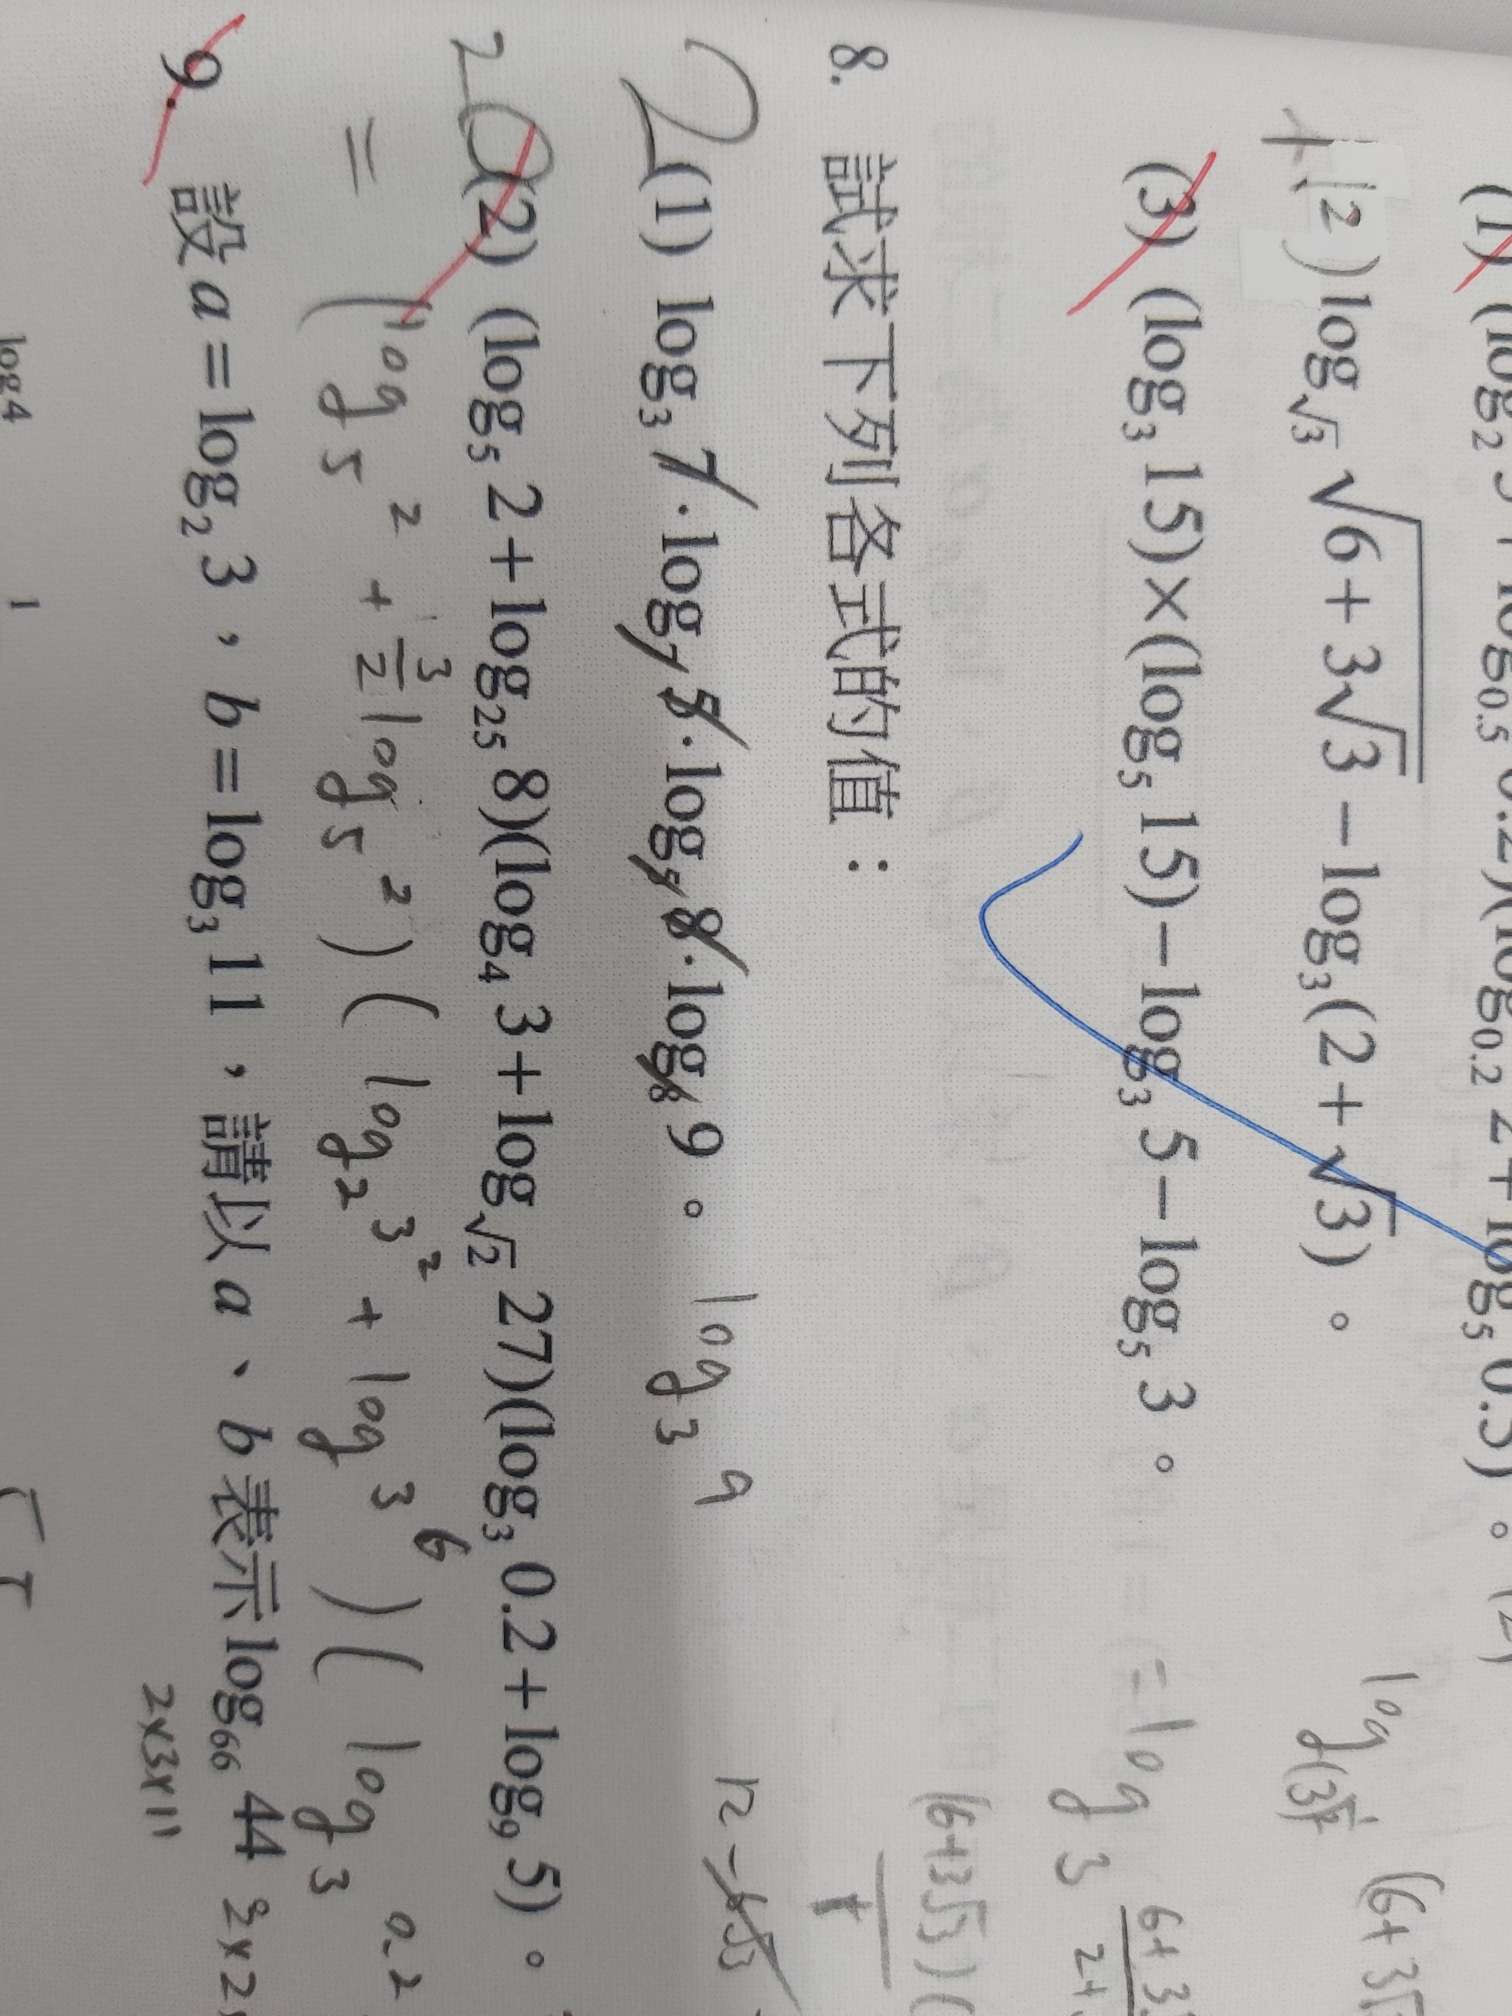 (1) (log₂ 5 + log₀.₅ 0.2)(log₀.₂ 2 + log₅ 0.5)。(2)
(2) log_√3 √(6+3√3) − log₃(2+√3)。 log
(6+3√
(3) (log₃ 15)×(log₅ 15)−log₃ 5−log₅ 3。 = log₃
6+3
2+
(6+3√3)(
8. 試求下列各式的值：
12−6√3
2 (1) log₃ 7·log₇ 5·log₅ 8·log₈ 9。 log₃ 9
20 (2) (log₅ 2+log₂₅ 8)(log₄ 3+log_√2 27)(log₃ 0.2+log₉ 5)。
= (log₅ 2 + 3/2 log₅ 2) (log₂ 3² + log 3⁶) (log₃ 0.2
9. 設 a=log₂ 3，b=log₃ 11，請以 a、b 表示 log₆₆ 44
2×3×11
log4
1